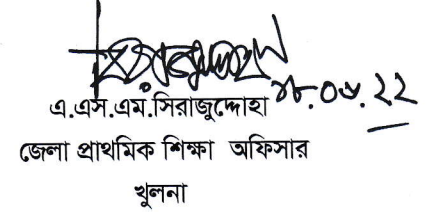 এ.এস.এম.সিরাজুদ্দোহা
জেলা প্রাথমিক শিক্ষা অফিসার
খুলনা